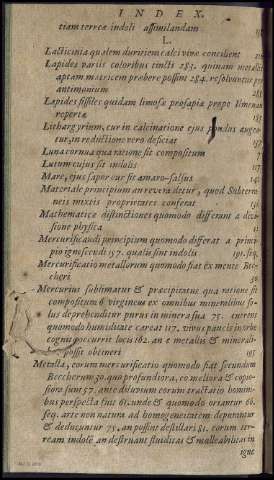 INDEX.
tiam terreæ indoli assimilandam
L.
Lacticinia qualem duritiem calci vivæ concilient
Lapides variis coloribus tincti 283. quinam metallis
aptam matricem præbere possint 284. resolvuntur per
antimonium 285
Lapides fissiles quidam limosæ prosapiæ prope Ilmenau
repertæ
Lithargyrium, cur in calcinatione ejus pondus augea-
tur, in reductione vero deficiat 157
Luna cornua qua ratione fit compositum
Lutum cujus sit indolis 127
Mare, ejus sapor cur sit amaro-salsus 145
Materiale principium an revera detur, quod Subterra-
neis mixtis proprietates conferat
Mathematicæ distinctiones quomodo differant a divi-
sione physica 41
Mercurificandi principium quomodo differat a princi-
pio ignescendi 157. qualis sint indolis 191. seq.
Mercurificatio metallorum quomodo fiat ex mente Bec-
cheri
Mercurius sublimatus & præcipitatus qua ratione sit
compositum 6 virgineus ex omnibus mineralibus so-
lus deprehenditur purus in minera sua 75. currens
quomodo humiditate careat 117. vivus paucis in orbe
cognitis occurrit locis 162. an e metallis & minerali-
possit obtineri 195
Metalla, eorum mercurificatio quomodo fiat secundum
Beccherum 30. quo profundiora, eo meliora & copio-
siora sunt 57. ante diluvium eorum tractatio homini-
bus perspecta fuit 61. unde & quomodo oriantur 66.
seq. arte non natura ad homogeneitatem deponuntur
& deducuntur 75. an possint destillari 81. eorum ter-
ream indolem an destruant fluiditas & malleabilitas in
igne